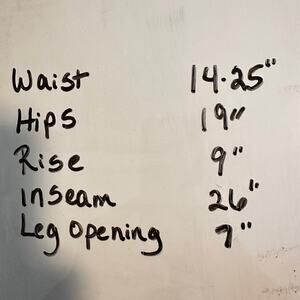 Waist 14.25"
Hips 19"
Rise 9"
Inseam 26"
Leg Opening 7"